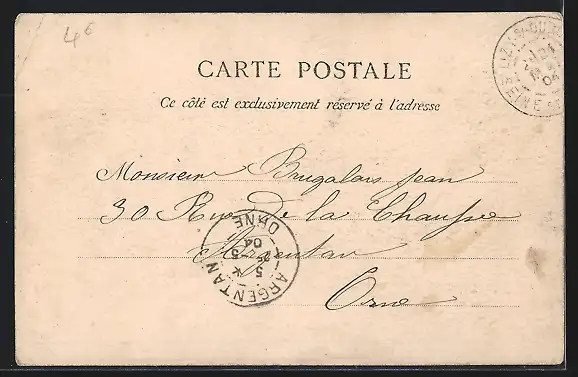 4€
CARTE POSTALE
Ce côté est exclusivement réservé à l'adresse
Monsieur Brugalais Jean
30 Rue de la Chaussée
Argentan
Orne
ARGENTAN
5 -5
04
ORNE
LIZY-S-OURCQ
04
SEINE-ET-